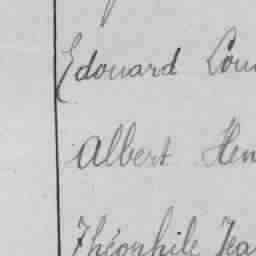 Edouard Lou
Albert Hen
Théophile Jea